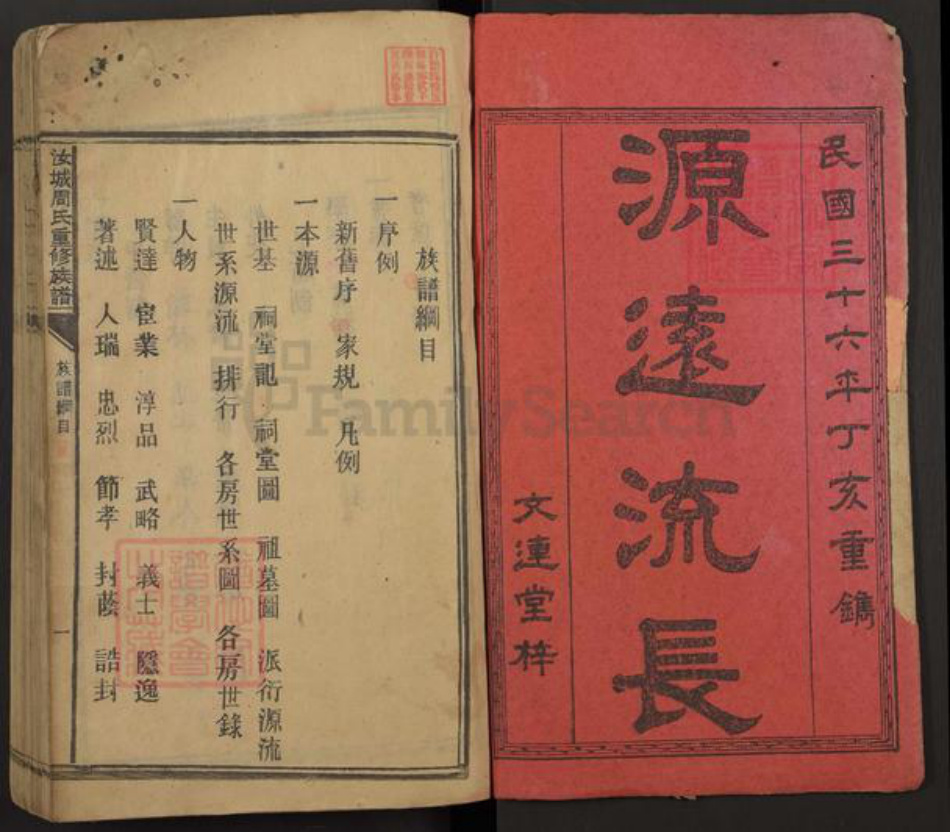 民國三十六年丁亥重鐫
源遠流長
文連堂梓
族譜綱目
一序例
新舊序 家規 凡例
一本源
世基 祠堂記 祠堂圖 祖墓圖 派衍源流
世系源流 排行 各房世系圖 各房世錄
一人物
賢達 宦業 淳品 武略 義士 隱逸
著述 人瑞 忠烈 節孝 封蔭 誥封
汝城周氏重修族譜 族譜綱目 一
FamilySearch